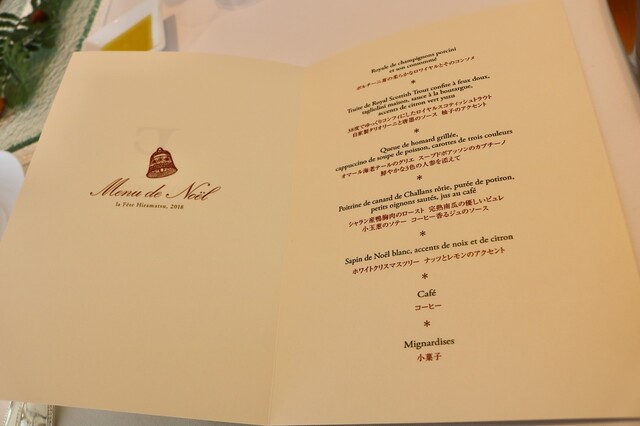 Menu de Noël
la Fête Hiramatsu, 2018
Royale de champignons porcini
et son consommé
ポルチーニ茸の柔らかなロワイヤルとそのコンソメ
*
Truite de Royal Scottish Trout confite à feux doux,
tagliolini maison, sauce à la boutargue,
accents de citron vert yuzu
38度でゆっくりコンフィにしたロイヤルスコティッシュトラウト
自家製タリオリーニと唐墨のソース 柚子のアクセント
*
Queue de homard grillée,
cappuccino de soupe de poisson, carottes de trois couleurs
オマール海老テールのグリエ スープドポアッソンのカプチーノ
鮮やかな3色の人参を添えて
*
Poitrine de canard de Challans rôtie, purée de potiron,
petits oignons sautés, jus au café
シャラン産鴨胸肉のロースト 完熟南瓜の優しいピュレ
小玉葱のソテー コーヒー香るジュのソース
*
Sapin de Noël blanc, accents de noix et de citron
ホワイトクリスマスツリー ナッツとレモンのアクセント
*
Café
コーヒー
*
Mignardises
小菓子